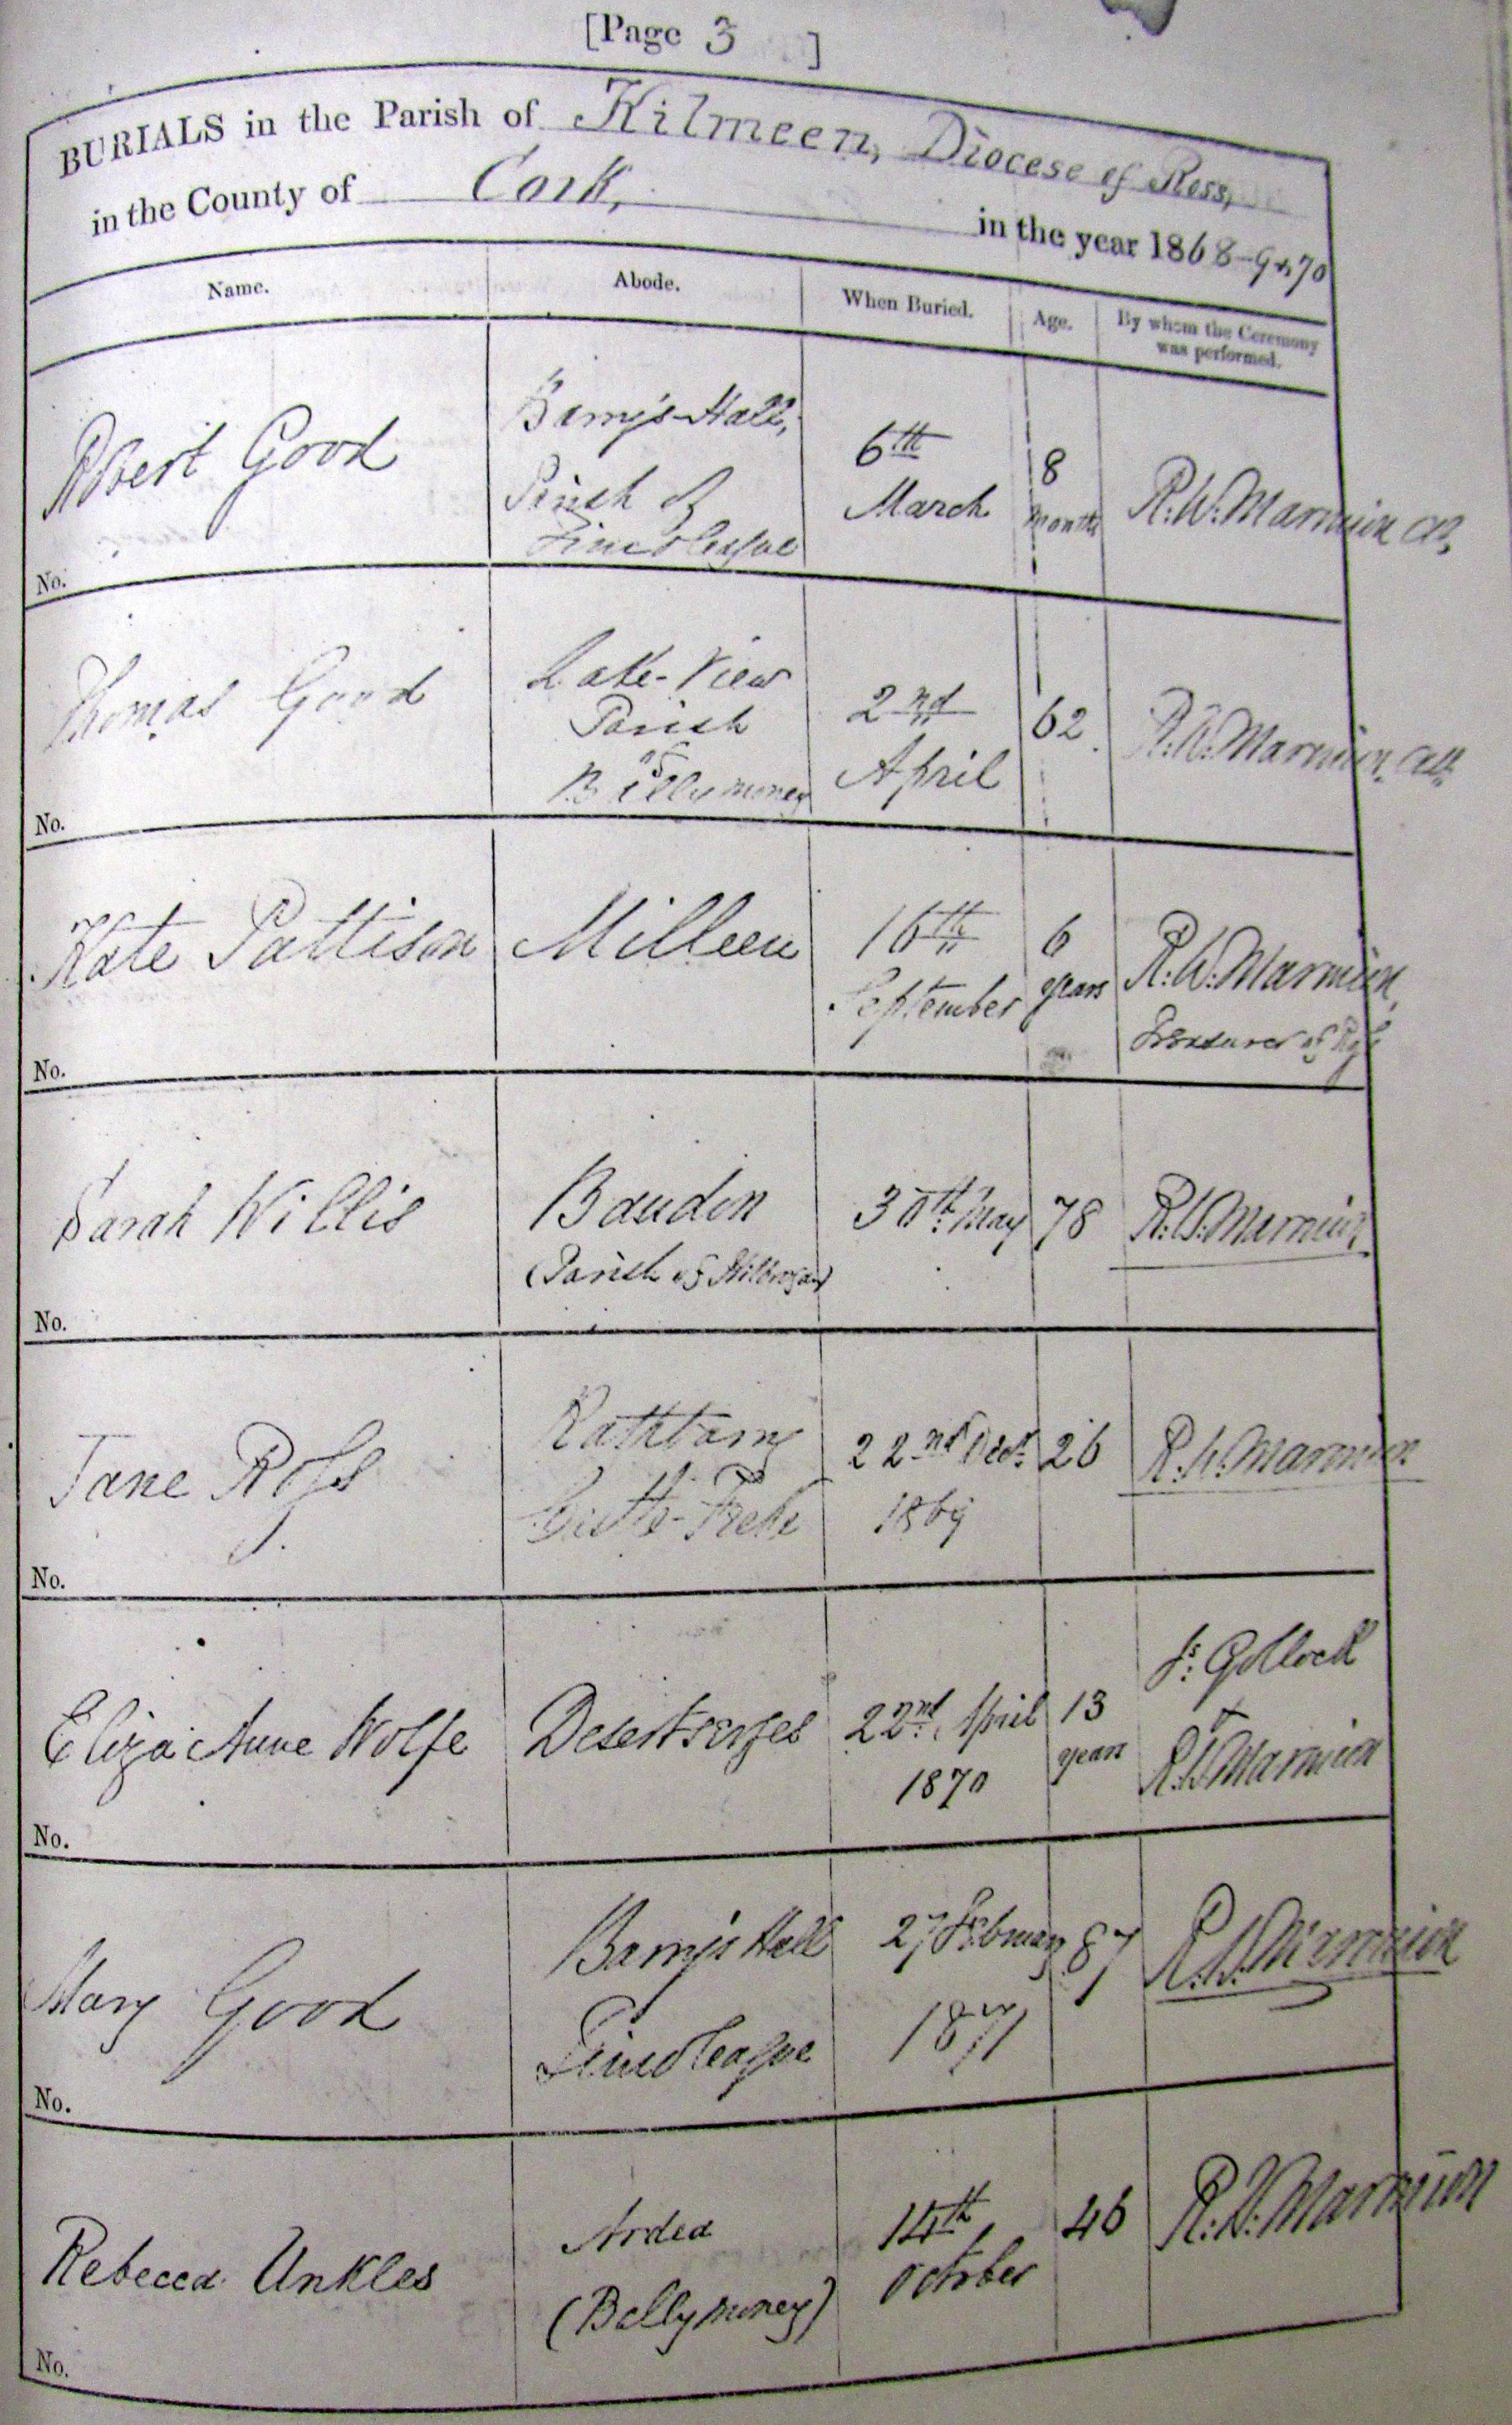 [Page 3 ]
BURIALS in the Parish of Kilmeen, Diocese of Ross,
in the County of Cork, in the year 1868-9 & 70
Name. Abode. When Buried. Age. By whom the Ceremony was performed.
Robert Good
Barry's-Hall,
Parish of
Timoleague
6th
March
8
months
R. W. Marmion
No.
Thomas Good
Lake-View
Parish
of
Ballymoney
2nd
April
62
R. W. Marmion
No.
Kate Pattison
Milleen
16th
September
6
years
R. W. Marmion,
Treasurer of
No.
Sarah Willis
Bandon
(Parish of Kilbrogan)
30th May
78
R. W. Marmion
No.
Jane Ross
Rathbarry
Castle-Freke
22nd Decr.
1869
26
R. W. Marmion
No.
Eliza Anne Wolfe
Desertserges
22nd. April
1870
13
years
Js. Gollock
+
R. W. Marmion
No.
Mary Good
Barry's Hall
Timoleague
27 February
1871
87
R. W. Marmion
No.
Rebecca Unkles
Ardea
(Ballymoney)
14th
October
46
R. W. Marmion
No.